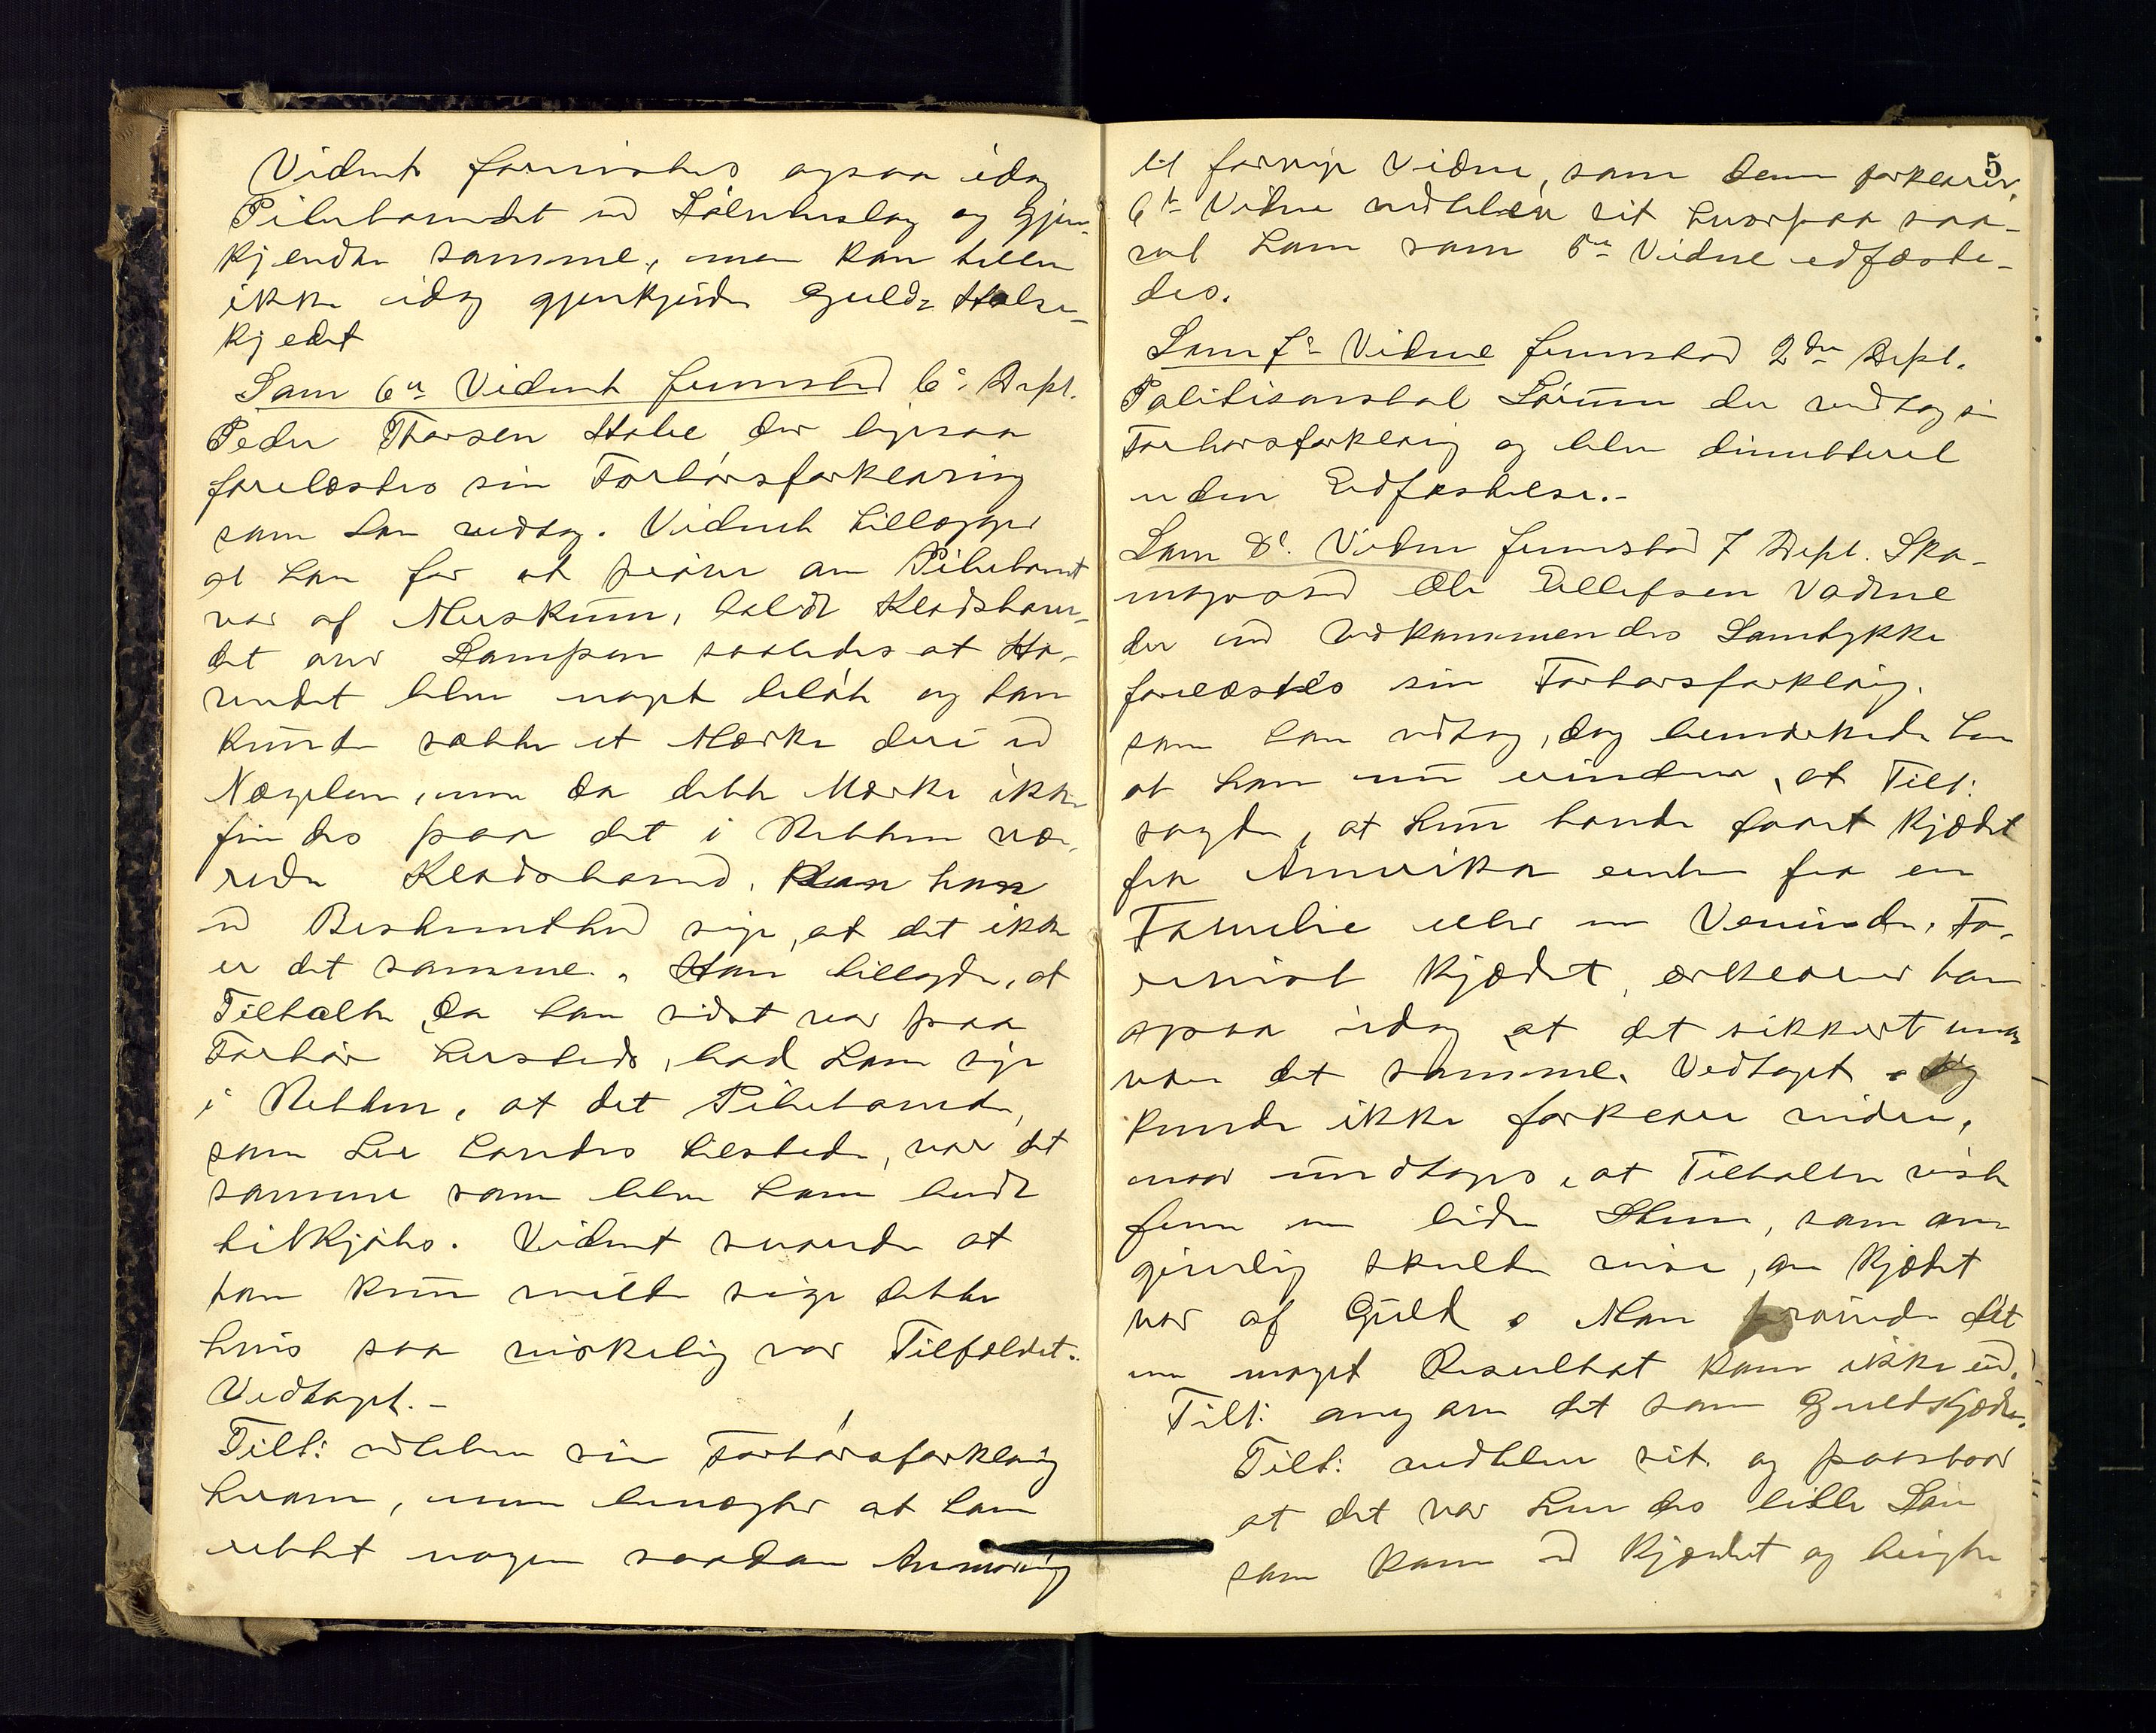 Vidnet forevistes ogsaa idag
Pibebaandet med Sølvbeslag og gjen-
kjendte samme, men kan heller
ikke idag gjenkjende Guld Halse-
kjedet
Som 6te Vidnet fremstod 6te Dept.
Peder Thorsen Hole der ligesaa
forelæstes sin Forhørsforklaring
som han vedtog. Vidnet tillægger
at han for at prøve om Pibebaandet
var af Meerskum, holdt Kladsbaan-
det over Lampen saaledes at Ho-
vedet blev noget blødt og han
kunde sætte et Mærke deri med
Neglen, men da dette Mærke ikke
findes paa det i Retten væ-
rende Kladsbaand. Kan han
med Bestemthed sige, at det ikke
er det samme. Han tillagde, at
Tiltalte da han sidst var paa
Forhør hersteds, bad ham sige
i Retten, at det Pibebaand,
som her havdes tilstede, var det
samme som blev ham budt
tilkjøbs. Vidnet svarede at
han kun vilde sige dette
hvis saa virkelig var Tilfældet.
Vedtaget. -
Tilt: vedblev sin Forhørsforklaring
herom, men benægter at have
rettet nogen saadan Anmodning
5
til forrige Vidne, som denne forklarer,
6te Vidne vedblev sit hvorpaa saa-
vel ham som 5te Vidne edfæste-
des.
Som 7de Vidne fremstod 2den Dept.
Politikonstabel Sørum der vedtog sin
Forhørsforklaring og blev dimitteret
uden Edfæstelse. -
Som 8de Vidne fremstod 7 Dept. Sko-
magersvend Ole Ellefsen Vadene
der med Vedkommendes Samtykke
forelæstes sin Forhørsforklaring.
som han vedtog, dog bemærkede han
at han nu erindrer, at Tilt:
sagde, at hun havde faaet Kjædet
fra Amerika enten fra en
Familie eller en Veninde. Fo-
revist Kjædet, erklærer han
ogsaa idag at det sikkert maa
være det samme. Vedtaget og
kunde ikke forklare videre,
maar undtages, at Tiltalte viste
frem en liden Sten, som an-
givelig skulde vise, om Kjædet
var af Guld. Man prøvede det
men noget Resultat kom ikke ud.
Tilt: angav det som Guldkjæde.
Tilt: vedblev sit og paastaar
at det var hendes lille Søn
som kom med Kjædet og